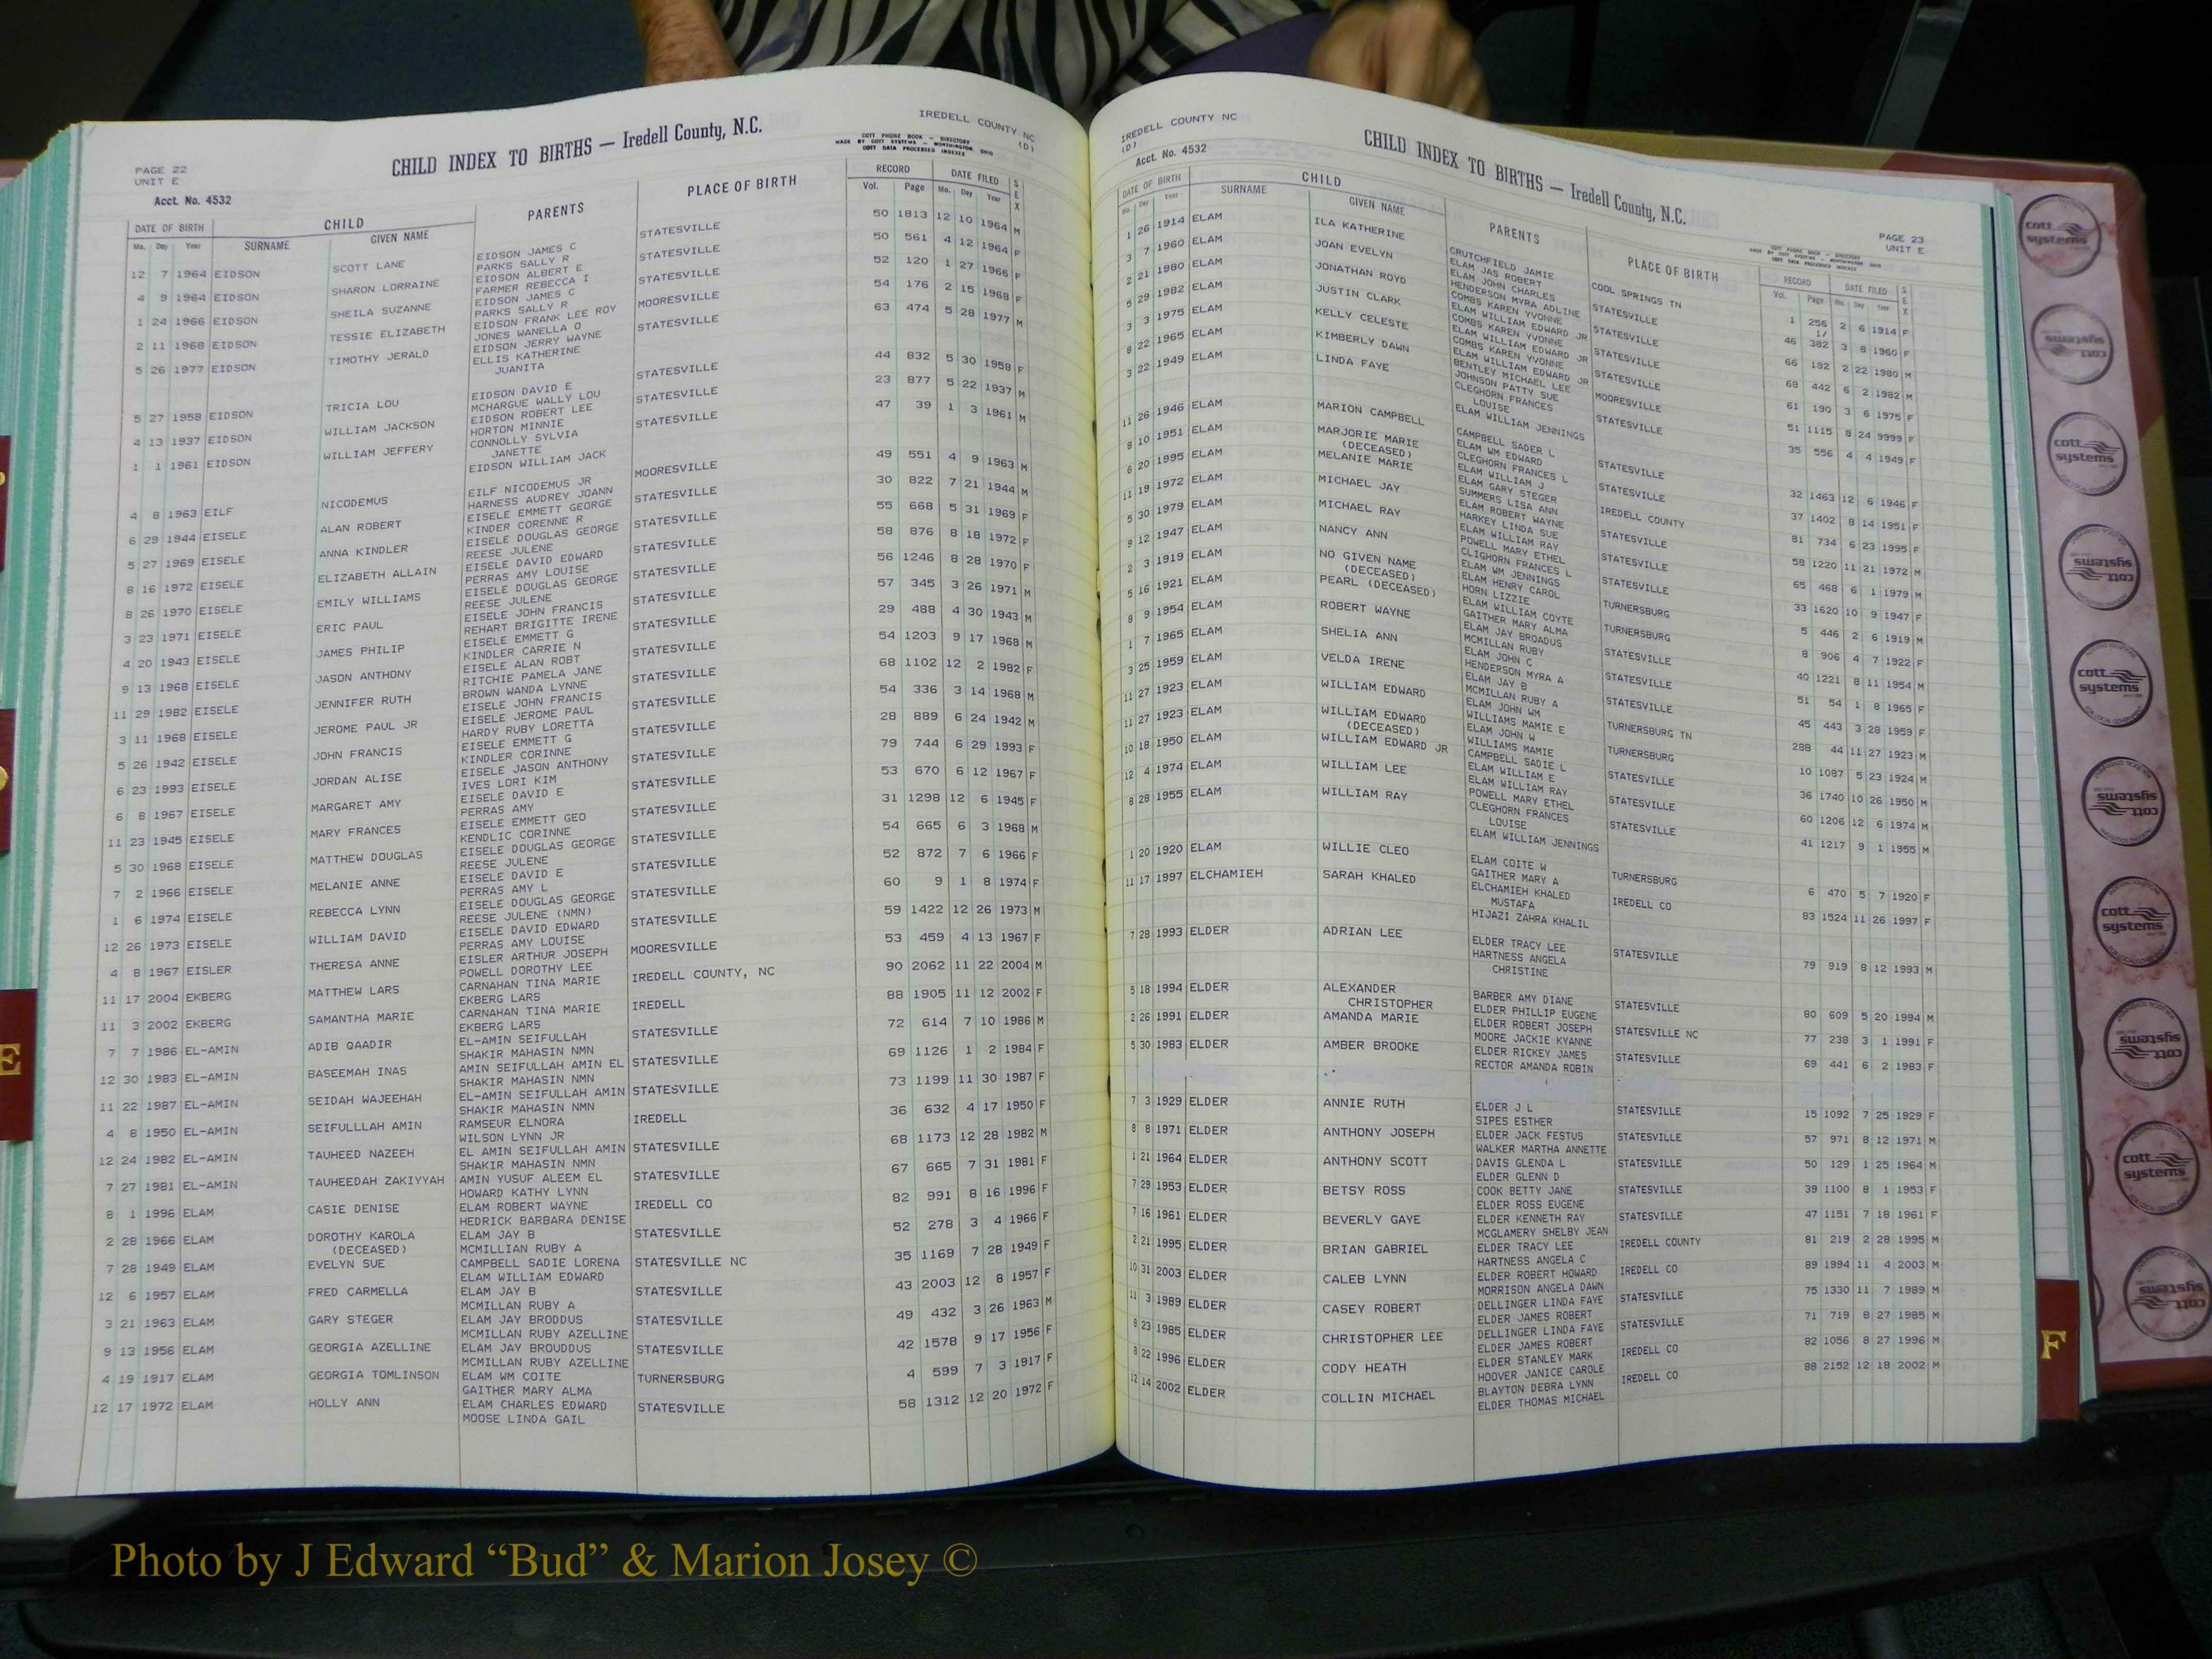 PAGE 22
UNIT E
Acct. No. 4532
CHILD INDEX TO BIRTHS — Iredell County, N.C.
IREDELL COUNTY NC
(D)
COTT PHONE BOOK — DIRECTORY
MADE BY COTT SYSTEMS — WORTHINGTON, OHIO
COTT DATA PROCESSED INDEXES
DATE OF BIRTH CHILD PARENTS PLACE OF BIRTH RECORD DATE FILED SEX
Mo. Day Year SURNAME GIVEN NAME Vol. Page Mo. Day Year
12 7 1964 EIDSON SCOTT LANE EIDSON JAMES C STATESVILLE 50 1813 12 10 1964 M
PARKS SALLY R
4 9 1964 EIDSON SHARON LORRAINE EIDSON ALBERT E STATESVILLE 50 561 4 12 1964 F
FARMER REBECCA I
1 24 1966 EIDSON SHEILA SUZANNE EIDSON JAMES C STATESVILLE 52 120 1 27 1966 F
PARKS SALLY R
2 11 1968 EIDSON TESSIE ELIZABETH EIDSON FRANK LEE ROY MOORESVILLE 54 176 2 15 1968 F
JONES WANELLA O
5 26 1977 EIDSON TIMOTHY JERALD EIDSON JERRY WAYNE STATESVILLE 63 474 5 28 1977 M
ELLIS KATHERINE
JUANITA
5 27 1958 EIDSON TRICIA LOU EIDSON DAVID E STATESVILLE 44 832 5 30 1958 F
MCHARGUE WALLY LOU
4 13 1937 EIDSON WILLIAM JACKSON EIDSON ROBERT LEE STATESVILLE 23 877 5 22 1937 M
HORTON MINNIE
1 1 1961 EIDSON WILLIAM JEFFERY CONNOLLY SYLVIA STATESVILLE 47 39 1 3 1961 M
JANETTE
EIDSON WILLIAM JACK
4 8 1963 EILF NICODEMUS EILF NICODEMUS JR MOORESVILLE 49 551 4 9 1963 M
HARNESS AUDREY JOANN
6 29 1944 EISELE ALAN ROBERT EISELE EMMETT GEORGE STATESVILLE 30 822 7 21 1944 M
KINDER CORENNE R
5 27 1969 EISELE ANNA KINDLER EISELE DOUGLAS GEORGE STATESVILLE 55 668 5 31 1969 F
REESE JULENE
8 16 1972 EISELE ELIZABETH ALLAIN EISELE DAVID EDWARD STATESVILLE 58 876 8 18 1972 F
PERRAS AMY LOUISE
8 26 1970 EISELE EMILY WILLIAMS EISELE DOUGLAS GEORGE STATESVILLE 56 1246 8 28 1970 F
REESE JULENE
3 23 1971 EISELE ERIC PAUL EISELE JOHN FRANCIS STATESVILLE 57 345 3 26 1971 M
REHART BRIGITTE IRENE
4 20 1943 EISELE JAMES PHILIP EISELE EMMETT G STATESVILLE 29 488 4 30 1943 M
KINDLER CARRIE N
9 13 1968 EISELE JASON ANTHONY EISELE ALAN ROBT STATESVILLE 54 1203 9 17 1968 M
RITCHIE PAMELA JANE
11 29 1982 EISELE JENNIFER RUTH BROWN WANDA LYNNE STATESVILLE 68 1102 12 2 1982 F
EISELE JOHN FRANCIS
3 11 1968 EISELE JEROME PAUL JR EISELE JEROME PAUL STATESVILLE 54 336 3 14 1968 M
HARDY RUBY LORETTA
5 26 1942 EISELE JOHN FRANCIS EISELE EMMETT G STATESVILLE 28 889 6 24 1942 M
KINDLER CORINNE
6 23 1993 EISELE JORDAN ALISE EISELE JASON ANTHONY STATESVILLE 79 744 6 29 1993 F
IVES LORI KIM
6 8 1967 EISELE MARGARET AMY EISELE DAVID E STATESVILLE 53 670 6 12 1967 F
PERRAS AMY
11 23 1945 EISELE MARY FRANCES EISELE EMMETT GEO STATESVILLE 31 1298 12 6 1945 F
KENDLIC CORINNE
5 30 1968 EISELE MATTHEW DOUGLAS EISELE DOUGLAS GEORGE STATESVILLE 54 665 6 3 1968 M
REESE JULENE
7 2 1966 EISELE MELANIE ANNE EISELE DAVID E STATESVILLE 52 872 7 6 1966 F
PERRAS AMY L
1 6 1974 EISELE REBECCA LYNN EISELE DOUGLAS GEORGE STATESVILLE 60 9 1 8 1974 F
REESE JULENE (NMN)
12 26 1973 EISELE WILLIAM DAVID EISELE DAVID EDWARD STATESVILLE 59 1422 12 26 1973 M
PERRAS AMY LOUISE
4 8 1967 EISLER THERESA ANNE EISLER ARTHUR JOSEPH MOORESVILLE 53 459 4 13 1967 F
POWELL DOROTHY LEE
11 17 2004 EKBERG MATTHEW LARS CARNAHAN TINA MARIE IREDELL COUNTY, NC 90 2062 11 22 2004 M
EKBERG LARS
11 3 2002 EKBERG SAMANTHA MARIE CARNAHAN TINA MARIE IREDELL 88 1905 11 12 2002 F
EKBERG LARS
7 7 1986 EL-AMIN ADIB QAADIR EL-AMIN SEIFULLAH STATESVILLE 72 614 7 10 1986 M
SHAKIR MAHASIN NMN
12 30 1983 EL-AMIN BASEEMAH INAS AMIN SEIFULLAH AMIN EL STATESVILLE 69 1126 1 2 1984 F
SHAKIR MAHASIN NMN
11 22 1987 EL-AMIN SEIDAH WAJEEHAH EL-AMIN SEIFULLAH AMIN STATESVILLE 73 1199 11 30 1987 F
SHAKIR MAHASIN NMN
4 8 1950 EL-AMIN SEIFULLLAH AMIN RAMSEUR ELNORA IREDELL 36 632 4 17 1950 F
WILSON LYNN JR
12 24 1982 EL-AMIN TAUHEED NAZEEH EL AMIN SEIFULLAH AMIN STATESVILLE 68 1173 12 28 1982 M
SHAKIR MAHASIN NMN
7 27 1981 EL-AMIN TAUHEEDAH ZAKIYYAH AMIN YUSUF ALEEM EL STATESVILLE 67 665 7 31 1981 F
HOWARD KATHY LYNN
8 1 1996 ELAM CASIE DENISE ELAM ROBERT WAYNE IREDELL CO 82 991 8 16 1996 F
HEDRICK BARBARA DENISE
2 28 1966 ELAM DOROTHY KAROLA ELAM JAY B STATESVILLE 52 278 3 4 1966 F
(DECEASED) MCMILLIAN RUBY A
7 28 1949 ELAM EVELYN SUE CAMPBELL SADIE LORENA STATESVILLE NC 35 1169 7 28 1949 F
ELAM WILLIAM EDWARD
12 6 1957 ELAM FRED CARMELLA ELAM JAY B STATESVILLE 43 2003 12 8 1957 F
MCMILLAN RUBY A
3 21 1963 ELAM GARY STEGER ELAM JAY BRODDUS STATESVILLE 49 432 3 26 1963 M
MCMILLAN RUBY AZELLINE
9 13 1956 ELAM GEORGIA AZELLINE ELAM JAY BROUDDUS STATESVILLE 42 1578 9 17 1956 F
MCMILLAN RUBY AZELLINE
4 19 1917 ELAM GEORGIA TOMLINSON ELAM WM COITE TURNERSBURG 4 599 7 3 1917 F
GAITHER MARY ALMA
12 17 1972 ELAM HOLLY ANN ELAM CHARLES EDWARD STATESVILLE 58 1312 12 20 1972 F
MOOSE LINDA GAIL
IREDELL COUNTY NC
(D)
Acct. No. 4532
CHILD INDEX TO BIRTHS — Iredell County, N.C.
PAGE 23
UNIT E
COTT PHONE BOOK — DIRECTORY
MADE BY COTT SYSTEMS — WORTHINGTON, OHIO
COTT DATA PROCESSED INDEXES
DATE OF BIRTH CHILD PARENTS PLACE OF BIRTH RECORD DATE FILED SEX
Mo. Day Year SURNAME GIVEN NAME Vol. Page Mo. Day Year
1 26 1914 ELAM ILA KATHERINE CRUTCHFIELD JAMIE COOL SPRINGS TN 1 256 2 6 1914 F
ELAM JAS ROBERT 17
3 7 1960 ELAM JOAN EVELYN ELAM JOHN CHARLES STATESVILLE 46 382 3 8 1960 F
HENDERSON MYRA ADLINE
2 21 1980 ELAM JONATHAN ROYD COMBS KAREN YVONNE STATESVILLE 66 182 2 22 1980 M
ELAM WILLIAM EDWARD JR
5 29 1982 ELAM JUSTIN CLARK COMBS KAREN YVONNE STATESVILLE 68 442 6 2 1982 M
ELAM WILLIAM EDWARD JR
3 3 1975 ELAM KELLY CELESTE COMBS KAREN YVONNE STATESVILLE 61 190 3 6 1975 F
ELAM WILLIAM EDWARD JR
8 22 1965 ELAM KIMBERLY DAWN BENTLEY MICHAEL LEE MOORESVILLE 51 1115 8 24 9999 F
JOHNSON PATTY SUE
3 22 1949 ELAM LINDA FAYE CLEGHORN FRANCES STATESVILLE 35 556 4 4 1949 F
LOUISE
ELAM WILLIAM JENNINGS
11 26 1946 ELAM MARION CAMPBELL CAMPBELL SADER L STATESVILLE 32 1463 12 6 1946 F
ELAM WM EDWARD
8 10 1951 ELAM MARJORIE MARIE CLEGHORN FRANCES L STATESVILLE 37 1402 8 14 1951 F
(DECEASED) ELAM WILLIAM J
6 20 1995 ELAM MELANIE MARIE ELAM GARY STEGER IREDELL COUNTY 81 734 6 23 1995 F
SUMMERS LISA ANN
11 19 1972 ELAM MICHAEL JAY ELAM ROBERT WAYNE STATESVILLE 58 1220 11 21 1972 M
HARKEY LINDA SUE
5 30 1979 ELAM MICHAEL RAY ELAM WILLIAM RAY STATESVILLE 65 468 6 1 1979 M
POWELL MARY ETHEL
9 12 1947 ELAM NANCY ANN CLIGHORN FRANCES L STATESVILLE 33 1620 10 9 1947 F
ELAM WM JENNINGS
2 3 1919 ELAM NO GIVEN NAME ELAM HENRY CAROL TURNERSBURG 5 446 2 6 1919 M
(DECEASED) HORN LIZZIE
5 16 1921 ELAM PEARL (DECEASED) ELAM WILLIAM COYTE TURNERSBURG 8 906 4 7 1922 F
GAITHER MARY ALMA
8 9 1954 ELAM ROBERT WAYNE ELAM JAY BROADUS STATESVILLE 40 1221 8 11 1954 M
MCMILLAN RUBY
1 7 1965 ELAM SHELIA ANN ELAM JOHN C STATESVILLE 51 54 1 8 1965 F
HENDERSON MYRA A
3 25 1959 ELAM VELDA IRENE ELAM JAY B STATESVILLE 45 443 3 28 1959 F
MCMILLAN RUBY A
11 27 1923 ELAM WILLIAM EDWARD ELAM JOHN WM TURNERSBURG TN 288 44 11 27 1923 M
WILLIAMS MAMIE E
11 27 1923 ELAM WILLIAM EDWARD ELAM JOHN W TURNERSBURG 10 1087 5 23 1924 M
(DECEASED) WILLIAMS MAMIE
10 18 1950 ELAM WILLIAM EDWARD JR CAMPBELL SADIE L STATESVILLE 36 1740 10 26 1950 M
ELAM WILLIAM E
12 4 1974 ELAM WILLIAM LEE ELAM WILLIAM RAY STATESVILLE 60 1206 12 6 1974 M
POWELL MARY ETHEL
8 28 1955 ELAM WILLIAM RAY CLEGHORN FRANCES STATESVILLE 41 1217 9 1 1955 M
LOUISE
ELAM WILLIAM JENNINGS
1 20 1920 ELAM WILLIE CLEO ELAM COITE W TURNERSBURG 6 470 5 7 1920 F
GAITHER MARY A
11 17 1997 ELCHAMIEH SARAH KHALED ELCHAMIEH KHALED IREDELL CO 83 1524 11 26 1997 F
MUSTAFA
HIJAZI ZAHRA KHALIL
7 28 1993 ELDER ADRIAN LEE ELDER TRACY LEE STATESVILLE 79 919 8 12 1993 M
HARTNESS ANGELA
CHRISTINE
5 18 1994 ELDER ALEXANDER BARBER AMY DIANE STATESVILLE 80 609 5 20 1994 M
CHRISTOPHER ELDER PHILLIP EUGENE
2 26 1991 ELDER AMANDA MARIE ELDER ROBERT JOSEPH STATESVILLE NC 77 238 3 1 1991 F
MOORE JACKIE KYANNE
5 30 1983 ELDER AMBER BROOKE ELDER RICKEY JAMES STATESVILLE 69 441 6 2 1983 F
RECTOR AMANDA ROBIN
7 3 1929 ELDER ANNIE RUTH ELDER J L STATESVILLE 15 1092 7 25 1929 F
SIPES ESTHER
8 8 1971 ELDER ANTHONY JOSEPH ELDER JACK FESTUS STATESVILLE 57 971 8 12 1971 M
WALKER MARTHA ANNETTE
1 21 1964 ELDER ANTHONY SCOTT DAVIS GLENDA L STATESVILLE 50 129 1 25 1964 M
ELDER GLENN D
7 29 1953 ELDER BETSY ROSS COOK BETTY JANE STATESVILLE 39 1100 8 1 1953 F
ELDER ROSS EUGENE
7 16 1961 ELDER BEVERLY GAYE ELDER KENNETH RAY STATESVILLE 47 1151 7 18 1961 F
MCGLAMERY SHELBY JEAN
2 21 1995 ELDER BRIAN GABRIEL ELDER TRACY LEE IREDELL COUNTY 81 219 2 28 1995 M
HARTNESS ANGELA C
10 31 2003 ELDER CALEB LYNN ELDER ROBERT HOWARD IREDELL CO 89 1994 11 4 2003 M
MORRISON ANGELA DAWN
11 3 1989 ELDER CASEY ROBERT DELLINGER LINDA FAYE STATESVILLE 75 1330 11 7 1989 M
ELDER JAMES ROBERT
8 23 1985 ELDER CHRISTOPHER LEE DELLINGER LINDA FAYE STATESVILLE 71 719 8 27 1985 M
ELDER JAMES ROBERT
8 22 1996 ELDER CODY HEATH ELDER STANLEY MARK IREDELL CO 82 1056 8 27 1996 M
HOOVER JANICE CAROLE
12 14 2002 ELDER COLLIN MICHAEL BLAYTON DEBRA LYNN IREDELL CO 88 2152 12 18 2002 M
ELDER THOMAS MICHAEL
E
F
cott systems
cott systems
cott systems
cott systems
cott systems
cott systems
cott systems
cott systems
cott systems
cott systems
Photo by J Edward “Bud” & Marion Josey ©